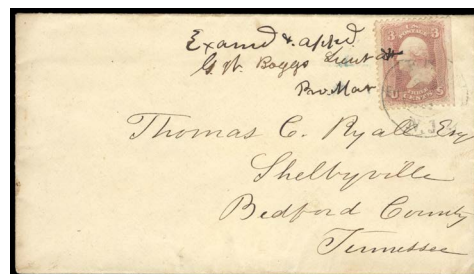 Examd & appd
G. W. Boggs Lieut &
Pro. Mar
3 3
U S
THREE
CENTS
Thomas C. Ryall Esq
Shelbyville
Bedford County
Tennessee